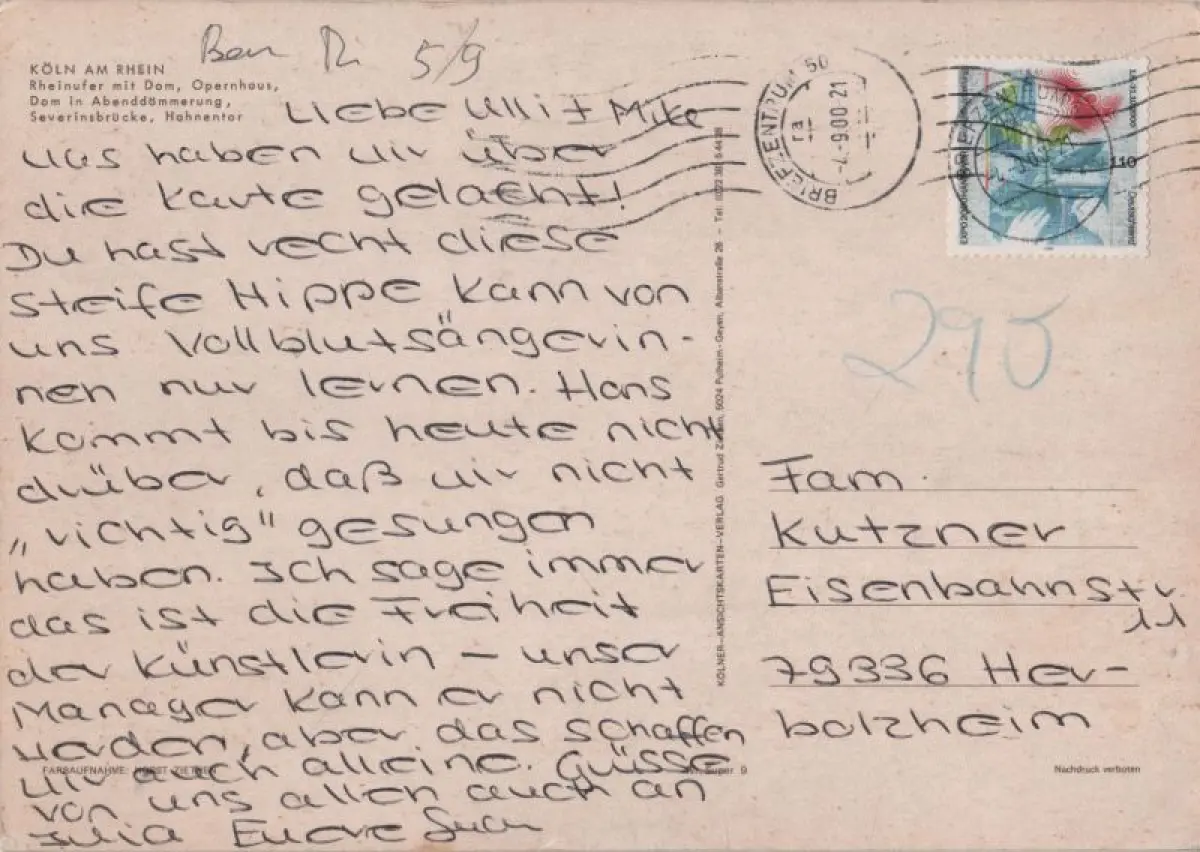 5/9
KÖLN AM RHEIN
Rheinufer mit Dom, Opernhaus,
Dom in Abenddämmerung,
Severinsbrücke, Hahnentor
Liebe Ulli + Mike
was haben wir über
die Karte gelacht!
Du hast recht diese
steife Hippe kann von
uns Vollblutsängerin-
nen nur lernen. Hans
kommt bis heute nicht
drüber, daß wir nicht
„richtig" gesungen
haben. Ich sage immer
das ist die Freiheit
der Künstlerin – unser
Manager kann er nicht
werden, aber das schaffen
wir auch alleine. Grüsse
von uns allen auch an
Julia Euere
FARBAUFNAHME: HORST ZIETHEN
Super 9
KÖLNER-ANSICHTSKARTEN-VERLAG Gertrud 5024 Pulheim-Geyen, Albenstraße 26 - Tel.
BRIEFZENTRUM 50
-4.-9.00-21
110
Deutschland
Fam.
Kutzner
Eisenbahnstr.
11
79336 Her-
bolzheim
290
Nachdruck verboten